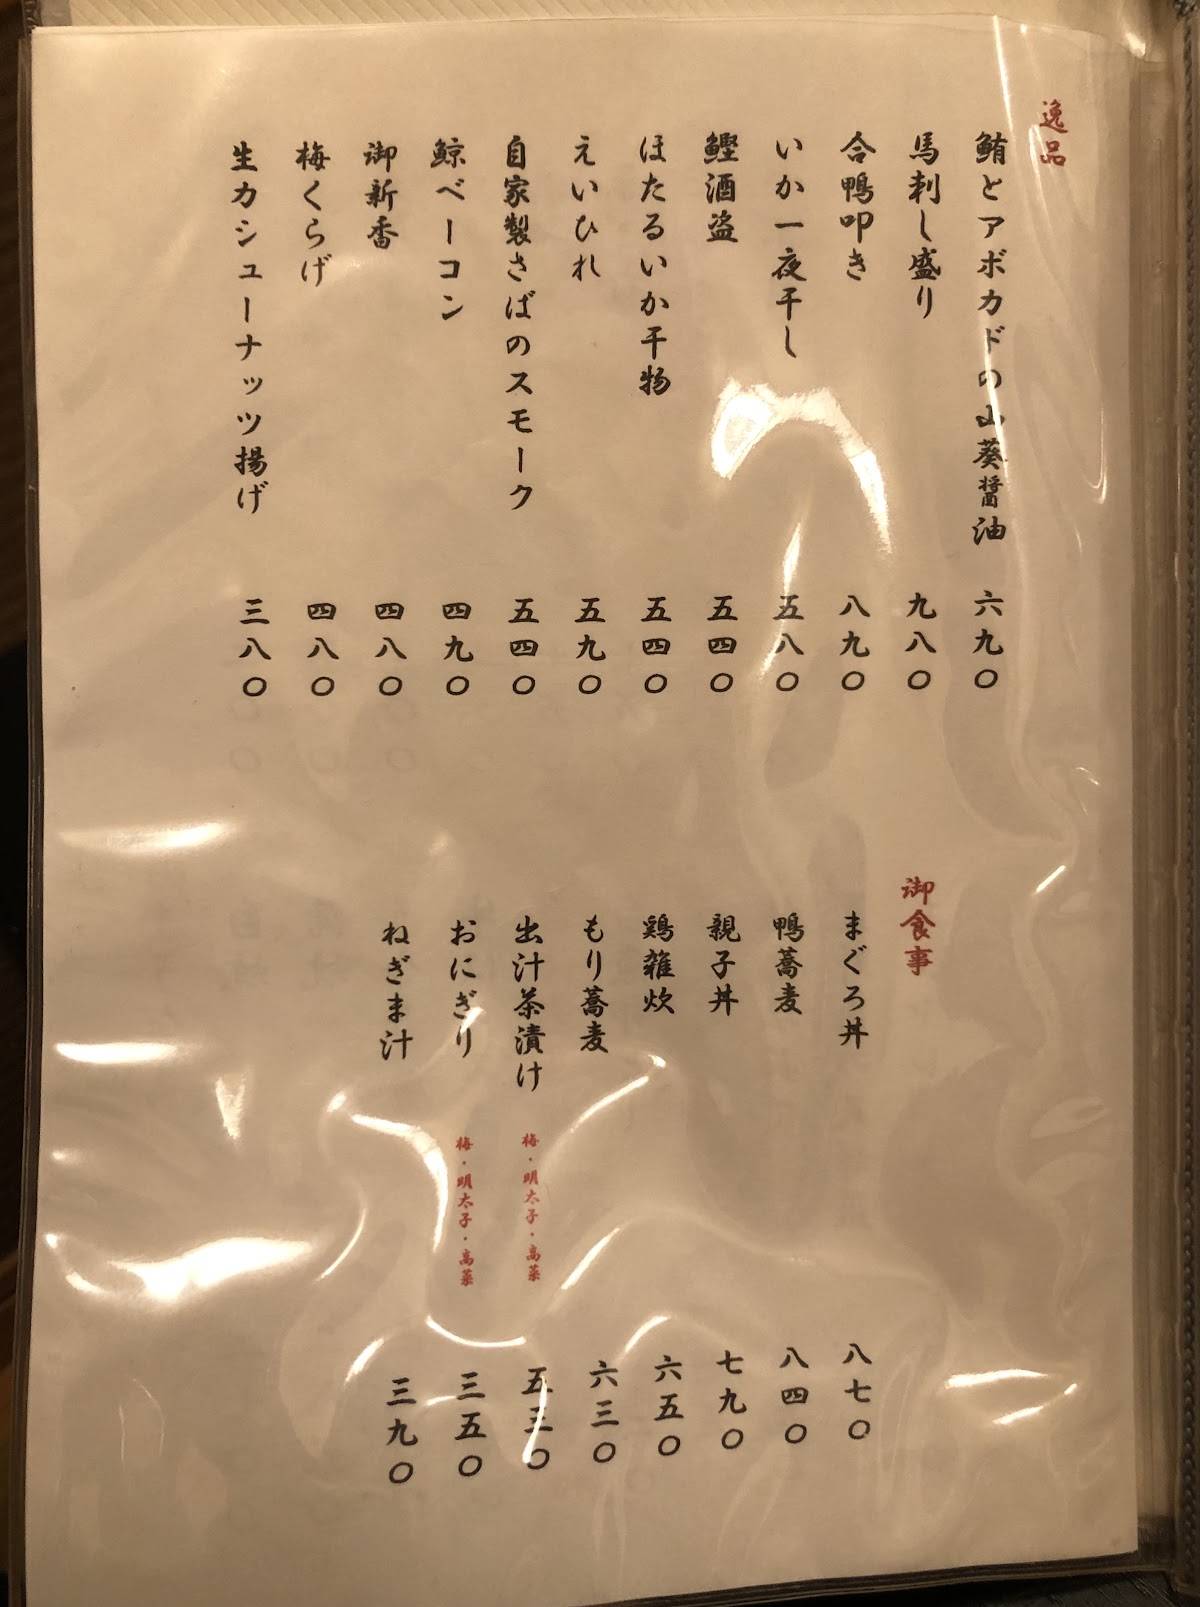 逸品
鮪とアボカドの山葵醤油 六九〇
馬刺し盛り 九八〇
合鴨叩き 八九〇
いか一夜干し 五八〇
鰹酒盗 五四〇
ほたるいか干物 五四〇
えいひれ 五九〇
自家製さばのスモーク 五四〇
鯨ベーコン 四九〇
御新香 四八〇
梅くらげ 四八〇
生カシューナッツ揚げ 三八〇
御食事
まぐろ丼 八七〇
鴨蕎麦 八四〇
親子丼 七九〇
鶏雑炊 六五〇
もり蕎麦 六三〇
出汁茶漬け 梅・明太子・高菜 五三〇
おにぎり 梅・明太子・高菜 三五〇
ねぎま汁 三九〇